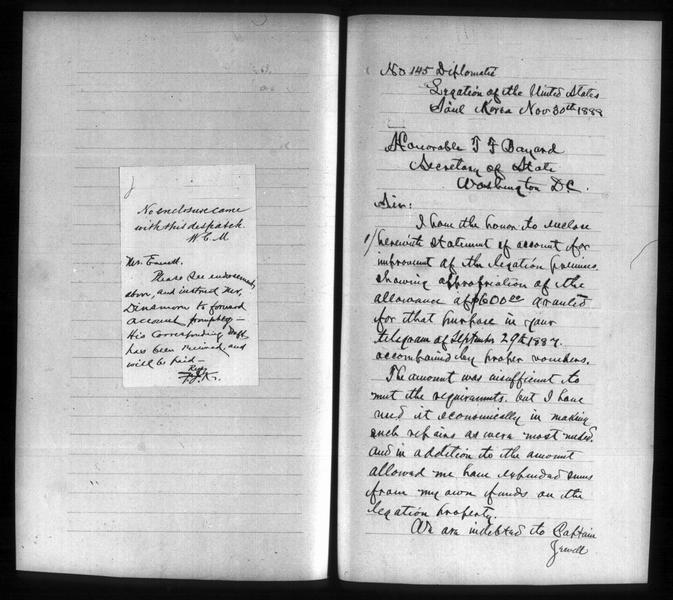 No enclosure came
with this despatch.
W. C. M
Mr.
Please see endorsement
above, and instruct Mr.
Dinsmore to forward
account promptly—
His corresponding draft
has been received and
will be paid—
No 145 Diplomatic
Legation of the United States
Söul Korea Nov 30th 1888
Honorable T F Bayard
Secretary of State
Washington DC.
Sir:
I have the honor to enclose
1/ herewith statement of account for
improvement of the legation premises
showing appropriation of the
allowance of $600.00 granted
for that purpose in your
telegram of September 29th 1887.
accompanied by proper vouchers.
The amount was insufficient to
meet the requirements. but I have
used it economically in making
such repairs as were most needed.
and in addition to the amount
allowed me have expended sums
from my own funds on the
legation property.
We are indebted to Captain
Jewell